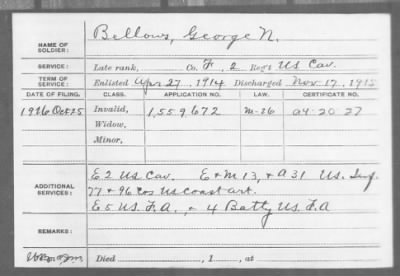 Bellows, George N.
NAME OF
SOLDIER:
SERVICE: Late rank, Co. F, 2 Reg't US Cav.
TERM OF
SERVICE: Enlisted Apr 27, 1914 Discharged Nov. 17, 1915
DATE OF FILING. CLASS. APPLICATION NO. LAW. CERTIFICATE NO.
1926 Oct 25 Invalid, 1,559,672 M-26 A4-20-27
Widow,
Minor,
E 2 US Cav. E + M 13, + A 31 US. Inf.
ADDITIONAL
SERVICES: 77 + 96 Cos US Coast Art.
E 5 US. F.A., + 4 Batty US. F.A
REMARKS:
Died , 1 , at